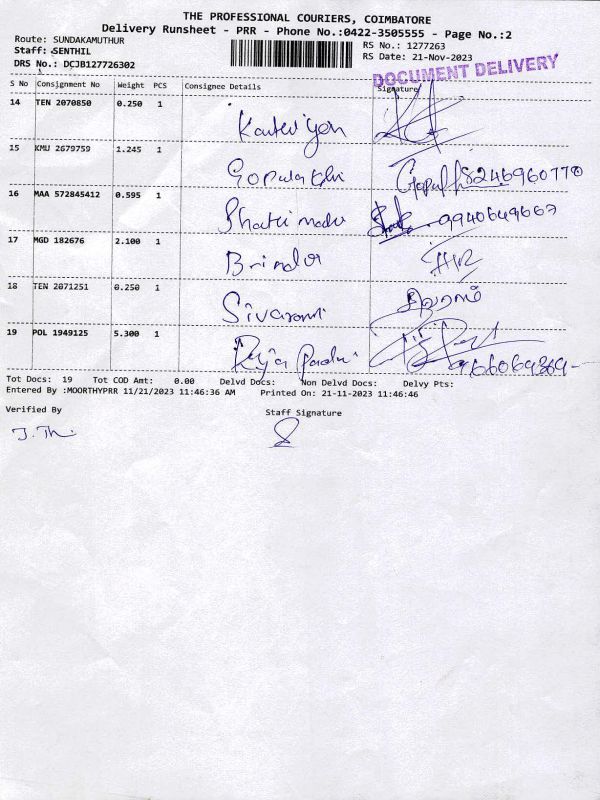 THE PROFESSIONAL COURIERS, COIMBATORE
Delivery Runsheet - PRR - Phone No.:0422-3505555 - Page No.:2
Route: SUNDAKAMUTHUR
RS No.: 1277263
Staff: SENTHIL
RS Date: 21-Nov-2023
DRS No.: DCJB127726302
DOCUMENT DELIVERY
S No Consignment No Weight PCS Consignee Details Signature
14 TEN 2070850 0.250 1
15 KMU 2679759 1.245 1 8246960770
16 MAA 572845412 0.595 1 9940649667
17 MGD 182676 2.100 1 Brinda
18 TEN 2071251 0.250 1 Sivarami சிவராம்
19 POL 1949125 5.300 1 9666069369
Tot Docs: 19 Tot COD Amt: 0.00 Delvd Docs: Non Delvd Docs: Delvy Pts:
Entered By :MOORTHYPRR 11/21/2023 11:46:36 AM Printed On: 21-11-2023 11:46:46
Verified By Staff Signature